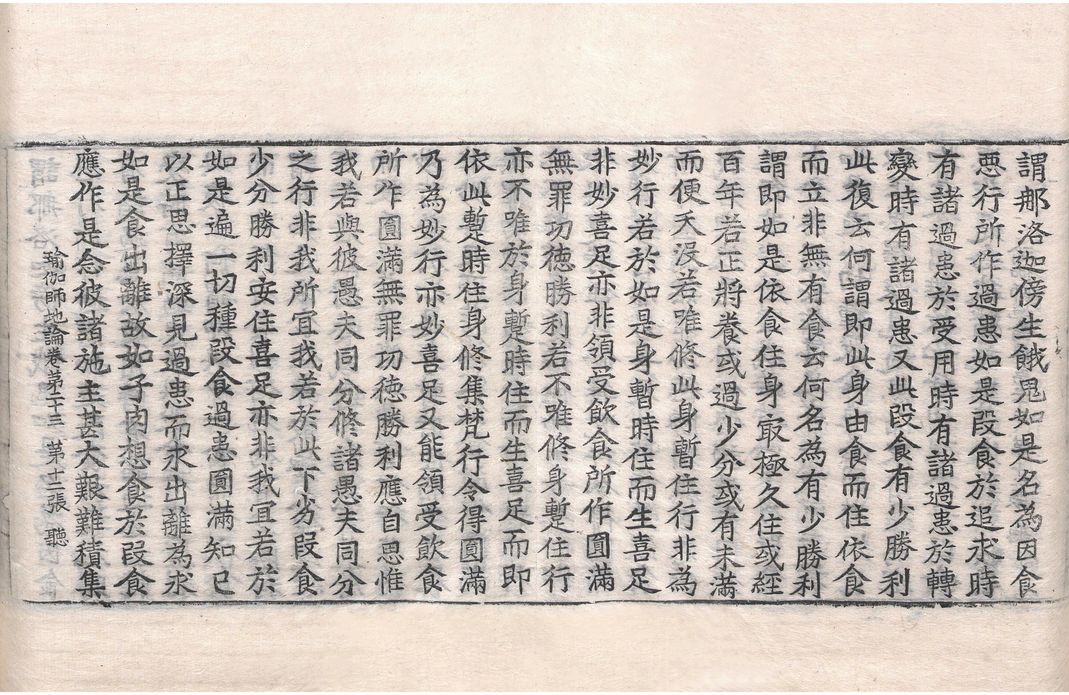 謂那洛迦傍生餓鬼如是名為因食
惡行所作過患如是段食於追求時
有諸過患於受用時有諸過患於轉
變時有諸過患又此段食有少勝利
此復云何謂即此身由食而住依食
而立非無有食云何名為有少勝利
謂即如是依食住身㝡極久住或經
百年若正將養或過少分或有未滿
而便夭沒若唯修此身暫住行非為
妙行若於如是身暫時住而生喜足
非妙喜足亦非領受飲食所作圓滿
無罪功德勝利若不唯修身蹔住行
亦不唯於身蹔時住而生喜足而即
依此蹔時住身修集梵行令得圓滿
乃為妙行亦妙喜足又能領受飲食
所作圓滿無罪功德勝利應自思惟
我若與彼愚夫同分修諸愚夫同分
之行非我所冝我若於此下劣段食
少分勝利安住喜足亦非我冝若於
如是遍一切種段食過患圓滿知已
以正思擇深見過患而求出離為求
如是食出離故如子肉想食於段食
應作是念彼諸施主甚大艱難積集
瑜伽師地論卷第二十三 第十二張 聽